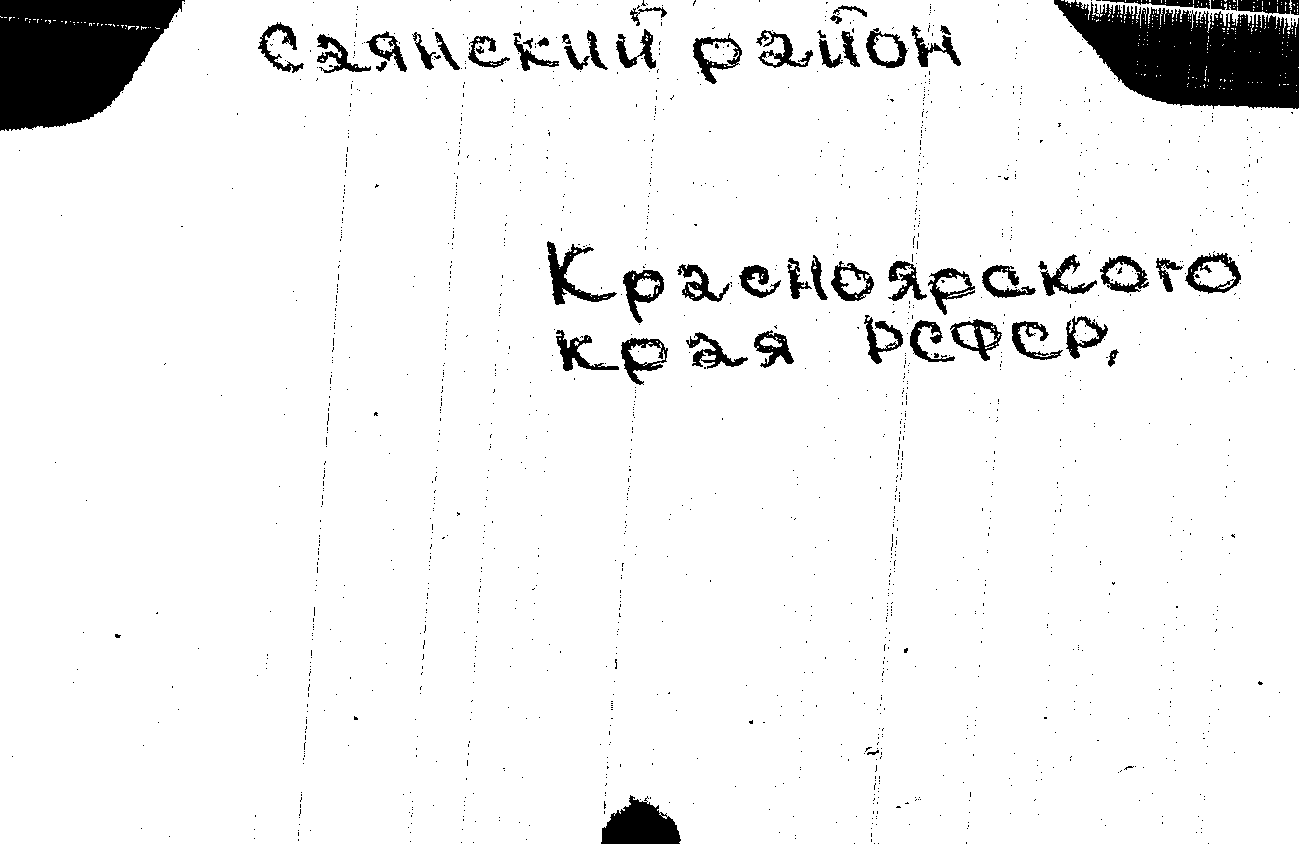 Саянский район
Красноярского
края РСФСР,